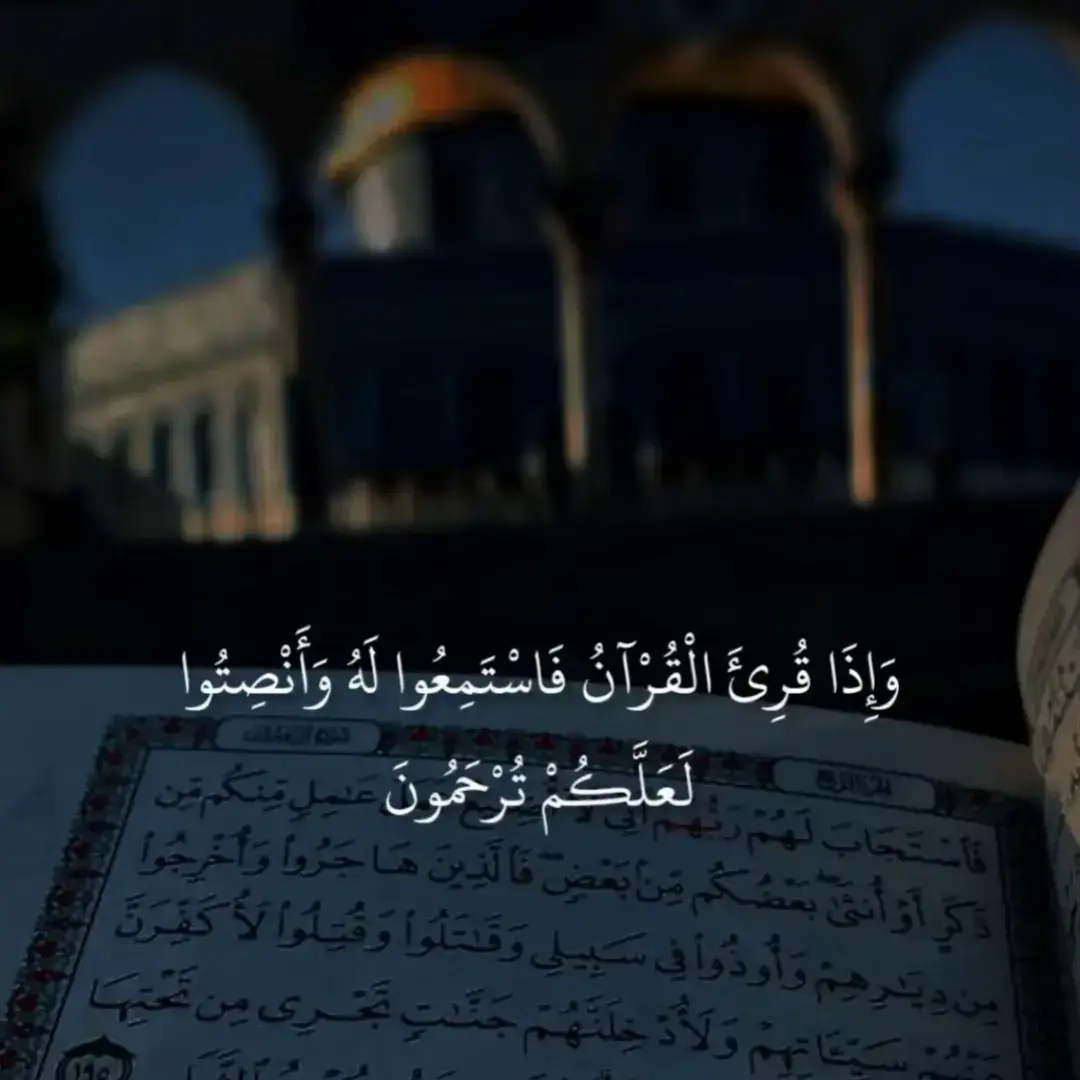 وَإِذَا قُرِئَ الْقُرْآنُ فَاسْتَمِعُوا لَهُ وَأَنْصِتُوا
لَعَلَّكُمْ تُرْحَمُونَ
فَٱسْتَجَابَ لَهُمْ رَبُّهُمْ أَنِّى لَآ عَٰمِلٍ مِّنكُم مِّن
ذَكَرٍ أَوْ أُنثَىٰ بَعْضُكُم مِّنۢ بَعْضٍ فَٱلَّذِينَ هَاجَرُوا۟ وَأُخْرِجُوا۟
مِن دِيَٰرِهِمْ وَأُوذُوا۟ فِى سَبِيلِى وَقَٰتَلُوا۟ وَقُتِلُوا۟ لَأُكَفِّرَنَّ
عَنْهُمْ سَيِّـَٔاتِهِمْ وَلَأُدْخِلَنَّهُمْ جَنَّٰتٍ تَجْرِى مِن تَحْتِهَا